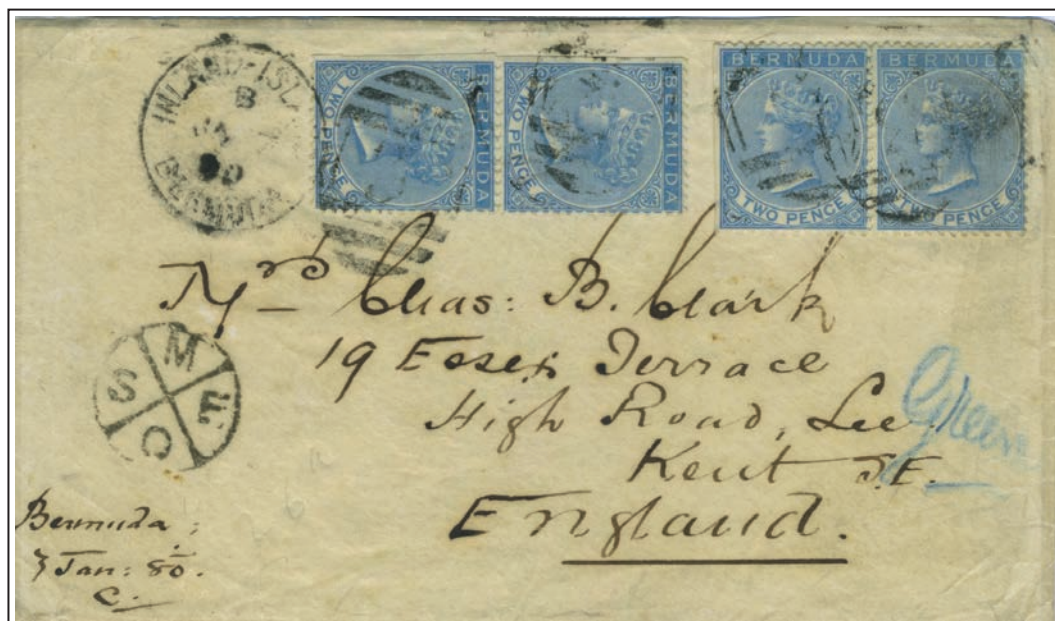 INLAND-ISL
B
80
BERMUDA
BERMUDA
TWO PENCE
BERMUDA
TWO PENCE
BERMUDA
TWO PENCE
BERMUDA
TWO PENCE
Chas: B. Clark
19 Essex Terrace
High Road, Lee
Kent S.E.
England.
Green
M
S
E
C
Bermuda,
Jan: 80.
C.